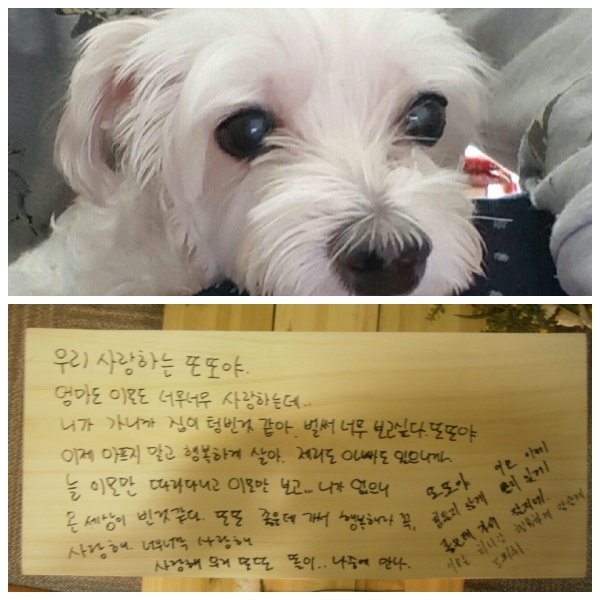 우리 사랑하는 또또야.
엄마도 이모도 너무너무 사랑하는데..
니가 가니까 집이 텅빈것 같아. 벌써 너무 보고싶다. 또또야
이제 아프지 말고 행복하게 살아. 제리도 아빠도 있으니까.
늘 이모만 따라다니고 이모만 보고... 니가 없으니
온 세상이 빈것같다. 또또 좋은데 가서 행복해라 꼭.
사랑해. 너무너무 사랑해
사랑해 우리 또또 똘이.. 나중에 만나.
또또야